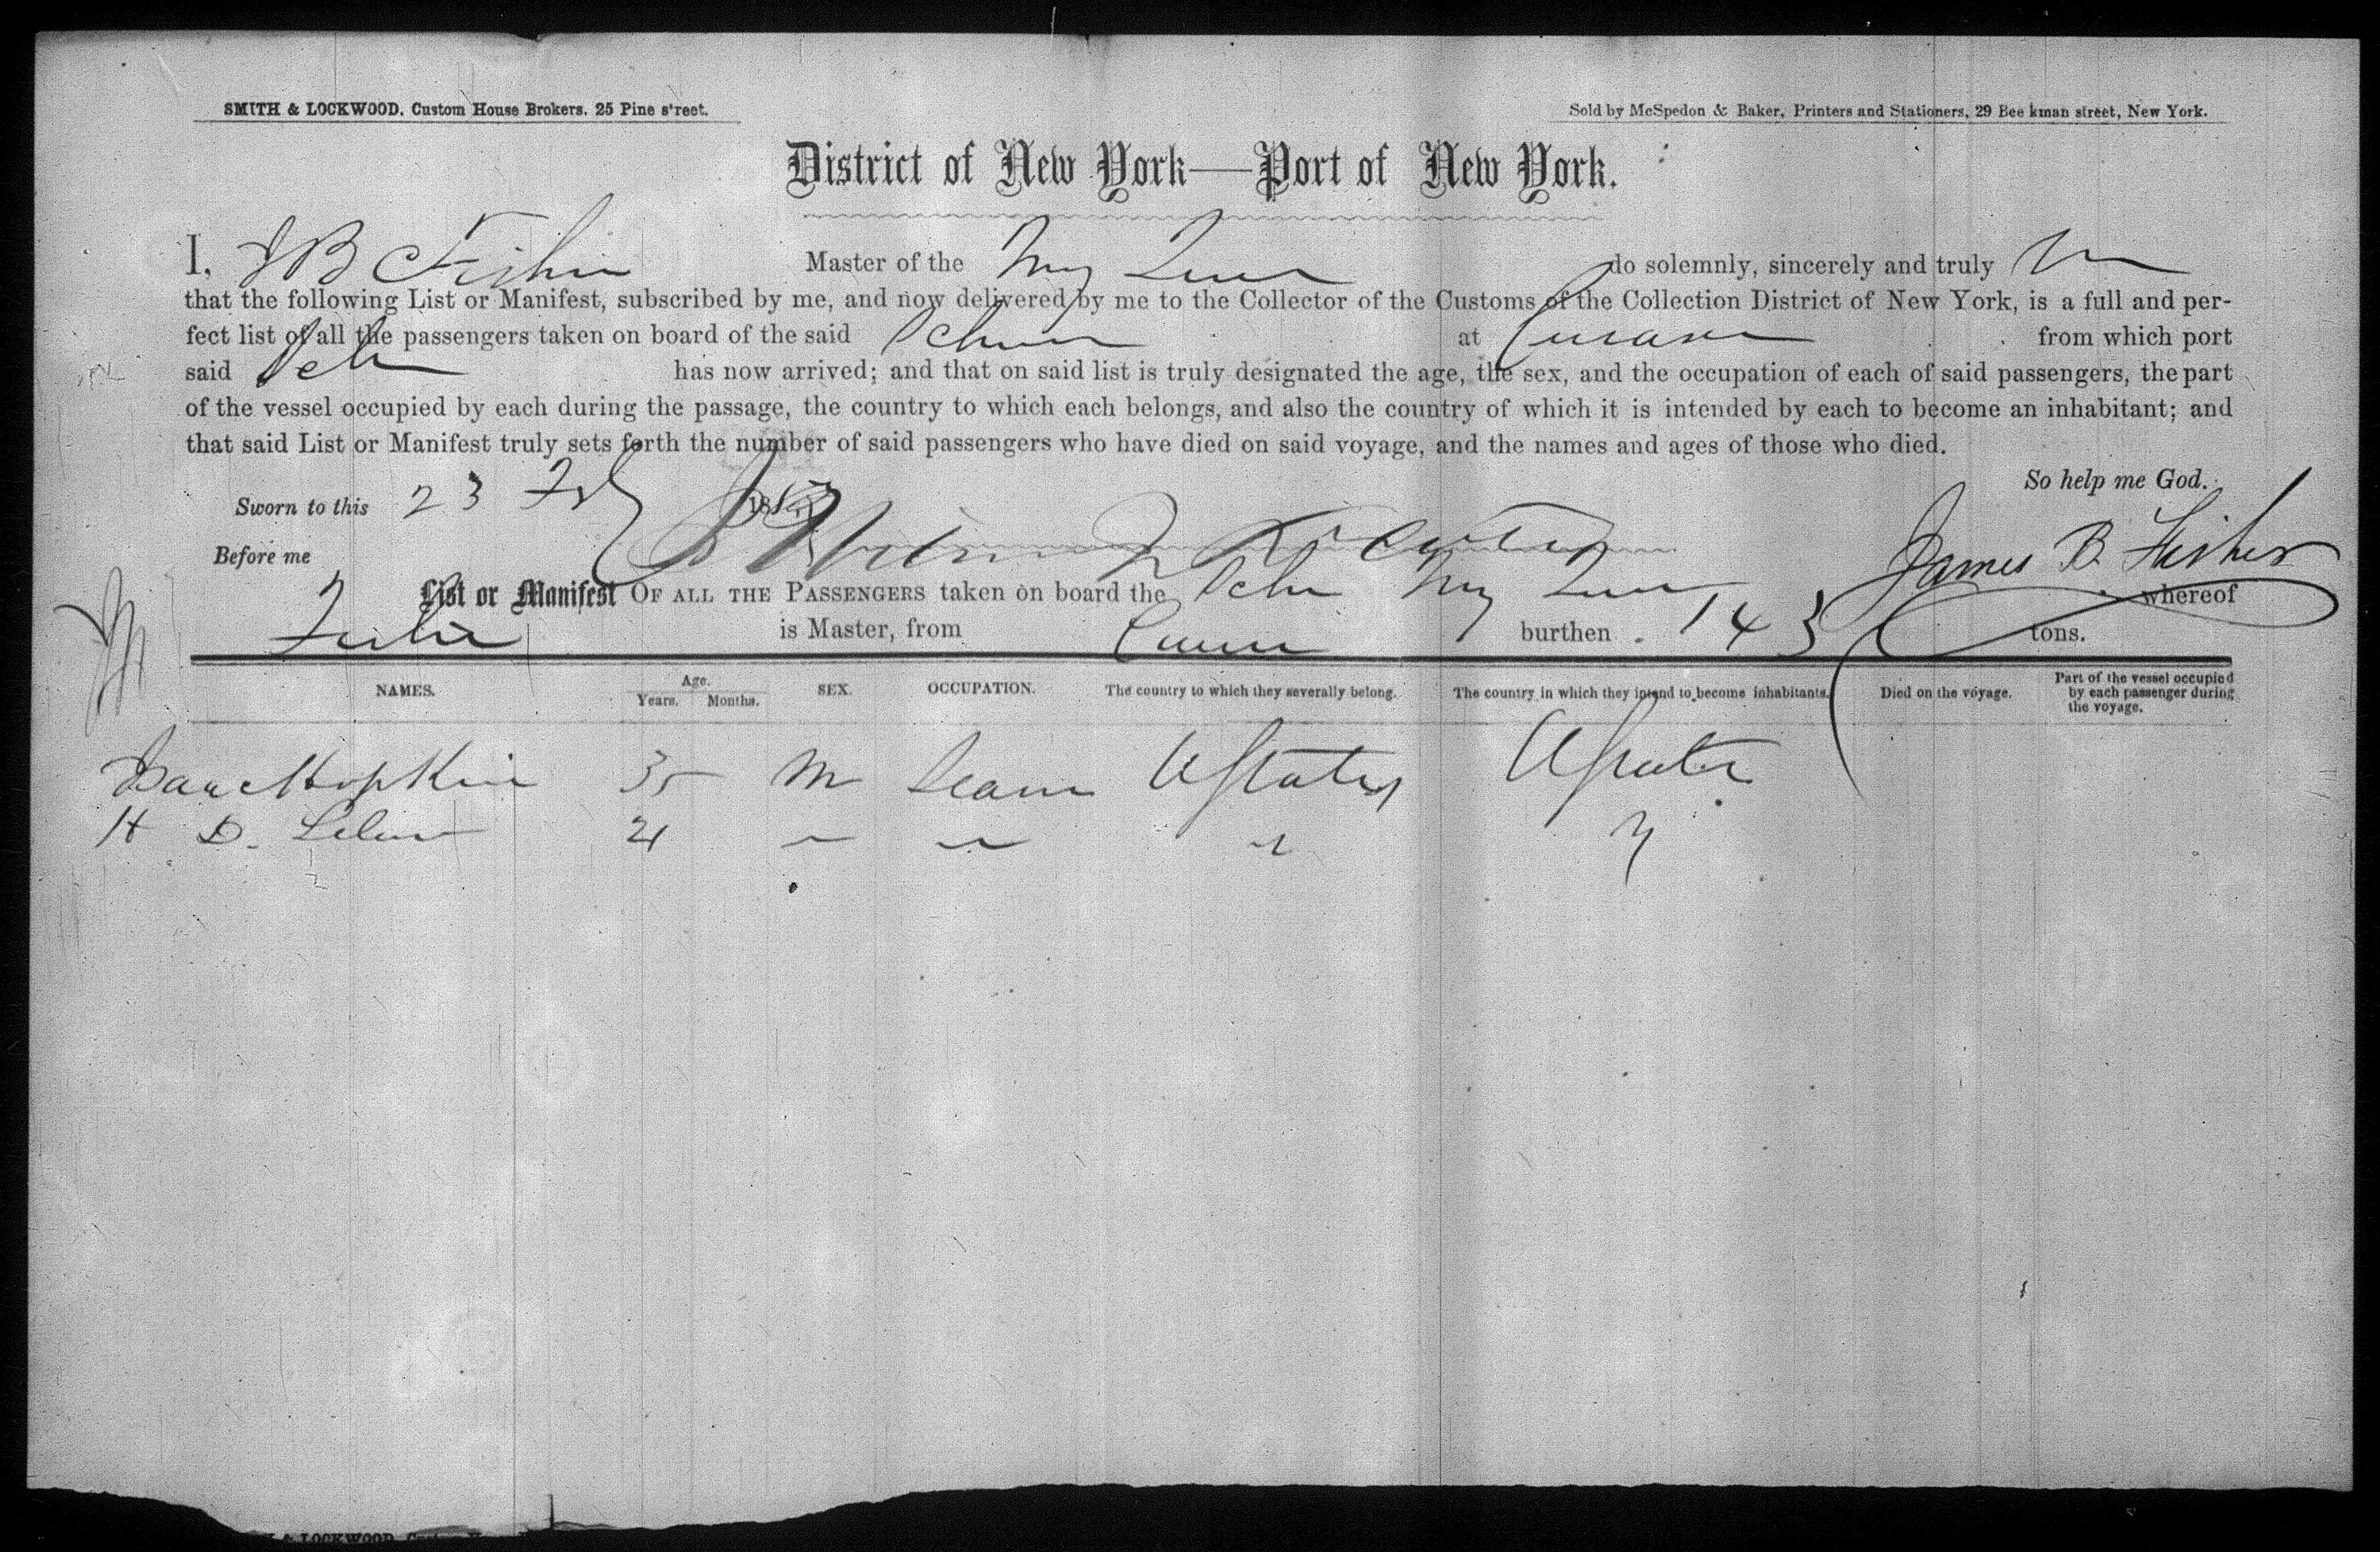 SMITH & LOCKWOOD, Custom House Brokers, 25 Pine s'reet.
Sold by McSpedon & Baker, Printers and Stationers, 29 Bee kman street, New York.
District of New York—Port of New York.
I, J B Fisher Master of the do solemnly, sincerely and truly
that the following List or Manifest, subscribed by me, and now delivered by me to the Collector of the Customs of the Collection District of New York, is a full and per-
fect list of all the passengers taken on board of the said Schr at Curacao from which port
said Sch has now arrived; and that on said list is truly designated the age, the sex, and the occupation of each of said passengers, the part
of the vessel occupied by each during the passage, the country to which each belongs, and also the country of which it is intended by each to become an inhabitant; and
that said List or Manifest truly sets forth the number of said passengers who have died on said voyage, and the names and ages of those who died.
So help me God.
Sworn to this 23 Feby 185
Before me
James B. Fisher
List or Manifest OF ALL THE PASSENGERS taken on board the Schr whereof
Fisher is Master, from burthen 143 tons.
NAMES. Age. Years. Months. SEX. OCCUPATION. The country to which they severally belong. The country in which they intend to become inhabitants. Died on the voyage. Part of the vessel occupied by each passenger during the voyage.
Isaac Hopkins 35 M Seam U States U States
H D. 21
& LOCKWOOD, Custom House